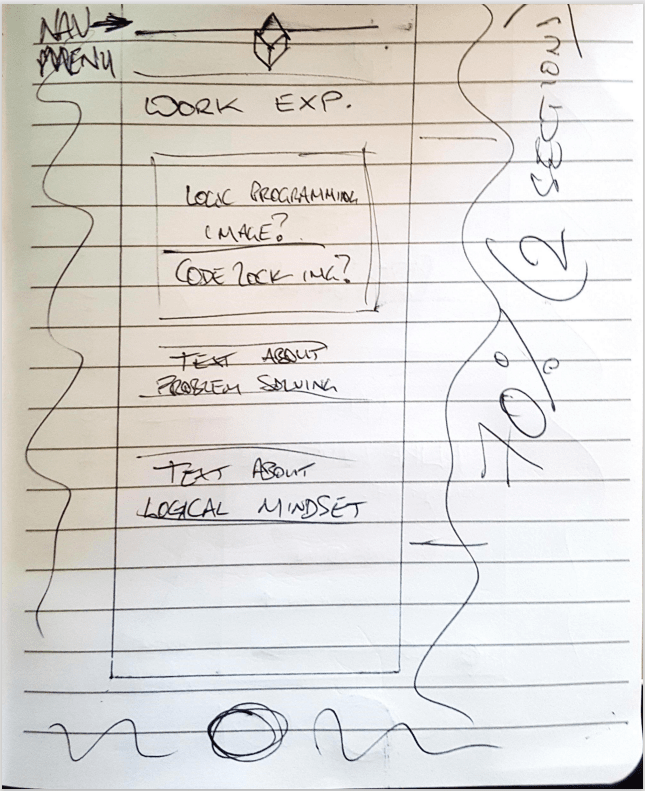 NAV
MENU
WORK EXP.
LOGIC PROGRAMMING
IMAGE?
CODE LOCK IMG?
TEXT ABOUT
PROBLEM SOLVING
TEXT ABOUT
LOGICAL MINDSET
70% (2 SECTIONS)